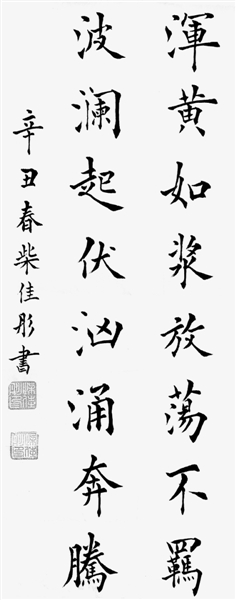 渾黃如漿放蕩不羈
波澜起伏汹涌奔騰
辛丑春柴佳彤書